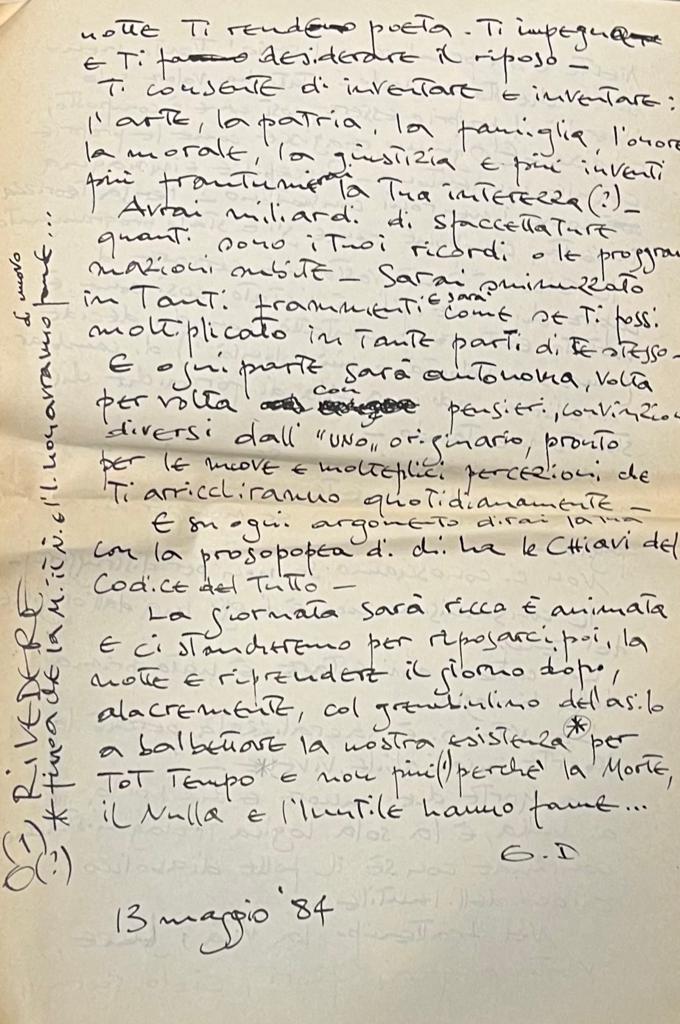 notte Ti rende poeta. Ti impegna
e Ti fa desiderare il riposo —
Ti consente di inventare e inventare:
l'arte, la patria, la famiglia, l'onore
la morale, la giustizia e più inventi
più frantumerai la Tua interezza (?) —
Avrai miliardi di sfaccettature
quanti sono i Tuoi ricordi o le program
mazioni subite — Sarai sminuzzato
in Tanti frammenti e sarà come se Ti fossi
moltiplicato in Tante parti di Te stesso —
E ogni parte sarà autonoma, volta
per volta con pensieri, convinzioni
diversi dall' "UNO" originario, pronto
per le nuove e molteplici percezioni che
Ti arricchiranno quotidianamente —
E su ogni argomento dirai la tua
con la prosopopea di chi ha le Chiavi del
Codice del Tutto —
La giornata sarà ricca e animata
e ci stancheremo per riposarci poi, la
notte e riprendere il giorno dopo,
alacremente, col grembiulino dell'asilo
a balbettare la nostra esistenza * per
Tot Tempo * e non più (!) perché la Morte,
il Nulla e l'Inutile hanno fame...
G. D
13 maggio '84
(?) RIVEDERE
(?) * finché la M. il N. e l'I. non avranno di nuovo fame...